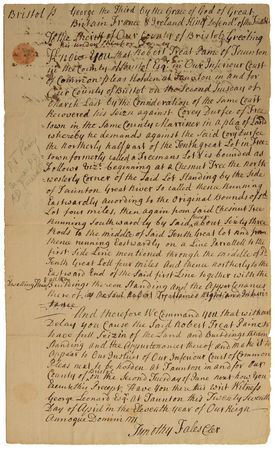 Bristol ss. George the Third by the Grace of God of Great
Britain France & Ireland King Defender of the Faith &c
To the Sheriff of Our County of Bristol Greeting
his under Sheriff or Deputy
Know you that Robert Treat Paine of Taunton
in the County of Bristol Before Our Inferiour Court
of Common pleas Holden at Taunton in and for
Our County of Bristol on the Second Tuesday of
March Last by the Consideration of the Same Court
Recovered his Seizen against Corey Durfe
town in the Same County Marriner in a plea of
whereby he demands against the Said Cory Durfe
the Northerly half part of the Tenth great Lot in Free-
town formerly Called a Freemans Lot & is bounded as
Follows Beginning at a Chesnut Tree the North
westerly Corner of the Said Lot Standing by the Side
of Taunton Great River So called thence Running
Eastwardly according to the Original Bounds of Sd.
Lot four miles, then again from Said Chesnut Tree
Running Southwardly by Said Sixty three
Rods to the middle of Said Tenth great Lot and from
thence running Eastwardly on a Line Parrallel to the
first Side Line mentioned through the middle of Sd
Tenth Great Lott four miles and thence northerly to the
Eastward End of the Said first Line together with the
Dwelling House Buildings thereon Standing and the Appurtenances
thereof, as the said Robert Treat Paines Right and Inheri
tance
And therefore We Command You that without
Delay you Cause the Said Robert Treat Paine to
Have full Seizin of the Land and Buildings thereon
Standing and the Appurtenances thereof and make it to
Appear to Our Justices of Our Inferiour Court of Common
Pleas next to be holden at Taunton in and for Our
County of Bristol on the Second Tuesday of June next how You
Execute this Precept. Have you there this writ Witness
George Leonard Esqr. At Taunton this Twenty Seventh
Day of April in the Eleventh Year of Our Reign
Annoque Domini 1771
Timothy Fales Cler